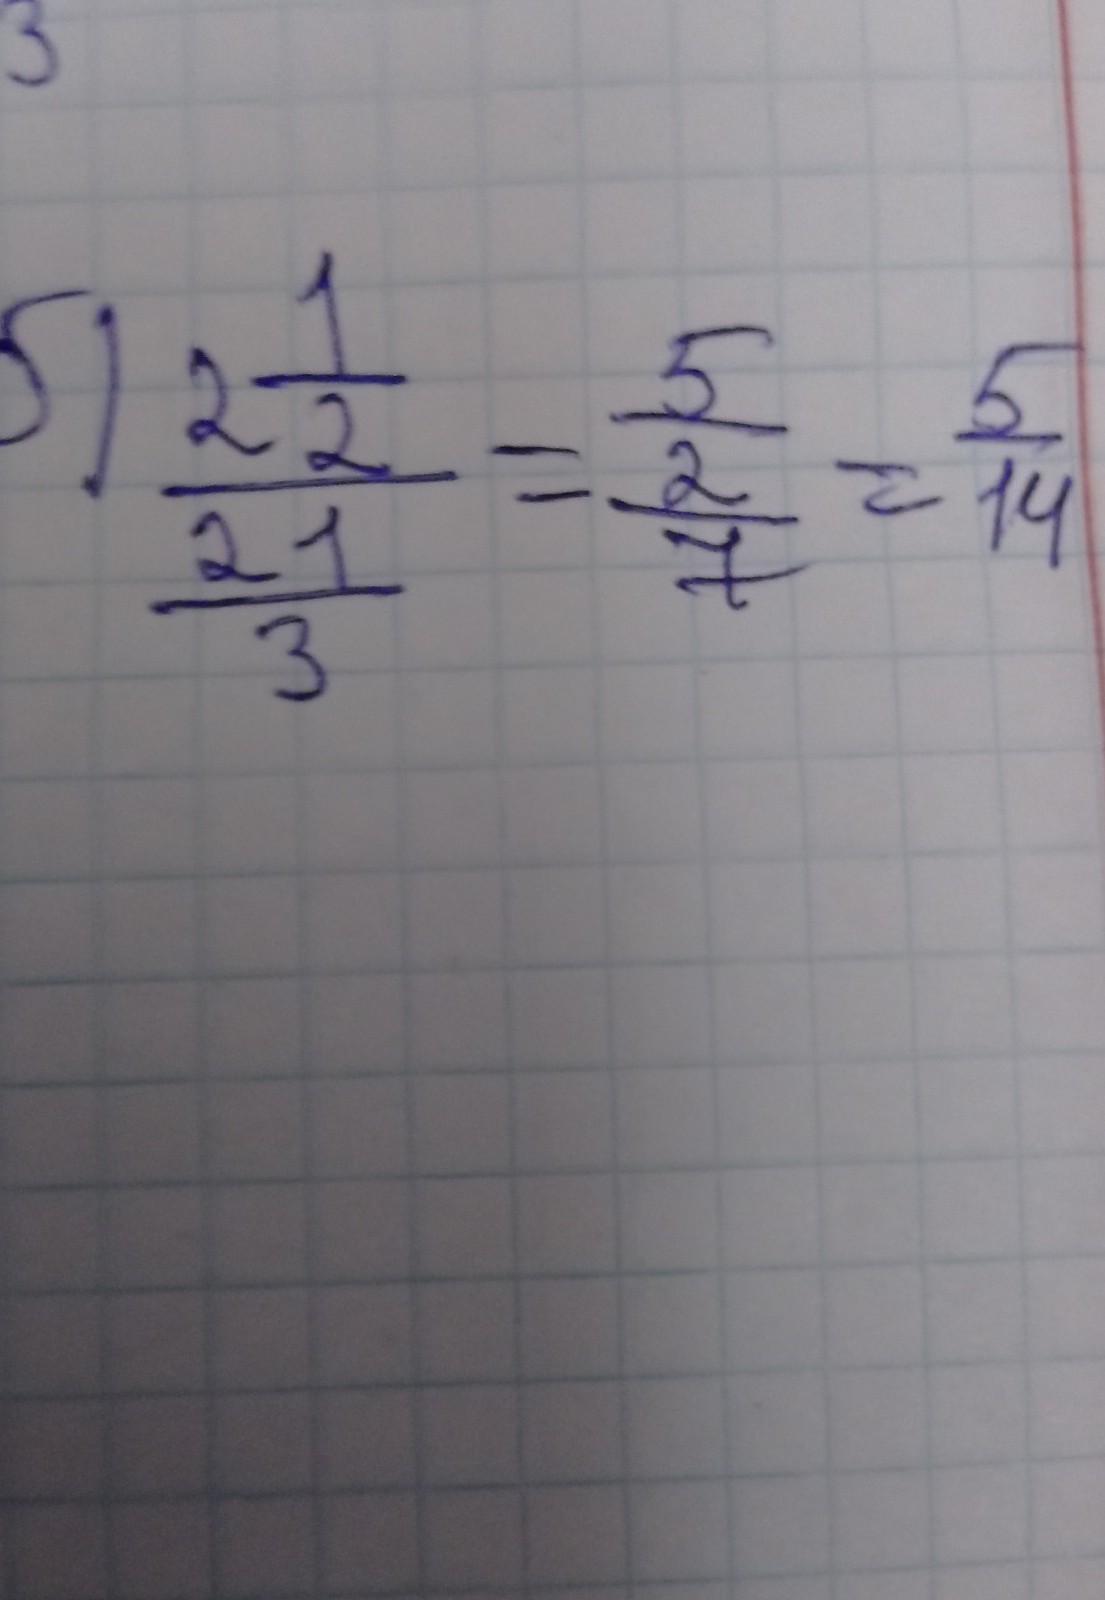 3
5) 2 1/2 / 21/3 = 5/2 / 7 = 5/14